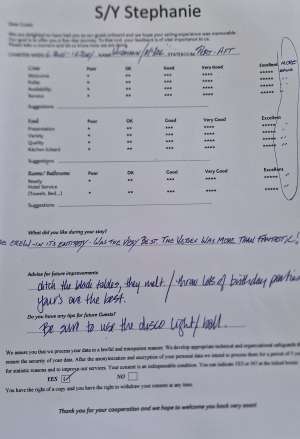 S/Y Stephanie
Dear Guest,
We are delighted to have had you as our guests onboard and we hope your sailing experience was memorable.
Our goal is to offer you a five star journey. To that end, your feedback is of vital importance to us.
Please take a moment and let us know how we are doing.
Crew Poor OK Good Very Good Excellent MORE
Welcome * ** *** **** *****
Polite * ** *** **** *****
Availability * ** *** **** *****
Service * ** *** **** *****
Suggestions
Food Poor OK Good Very Good Excellent
Presentation * ** *** **** *****
Variety * ** *** **** *****
Quality * ** *** **** *****
Kitchen (clean) * ** *** **** *****
Suggestions
Rooms/ Bathrooms Poor OK Good Very Good Excellent
Hotel Service * ** *** **** *****
(Towels, Bed...)
Suggestions
What did you like during your stay?
CREW IN ITS ENTIRETY. WAS THE VERY BEST. THE WAS MORE THAN FANTASTIC!
Advise for future improvements
ditch the tables, they melt. / throw lots of birthday parties
yours are the best.
Do you have any tips for future Guests?
Be sure to use the disco light/ball.
We assure you that we process your data in a lawful and transparent manner. We develop appropriate technical and organizational safeguards
ensure the security of your data. After the anonymization and encryption of your personal data we intend to process them for a period of 5
for statistic reasons and to improve our services. Your consent is an indispensable condition. You can indicate YES or NO
YES NO
You have the right of a copy and you have the right to withdraw your consent at any time.
Thank you for your cooperation and we hope to welcome you back very soon!